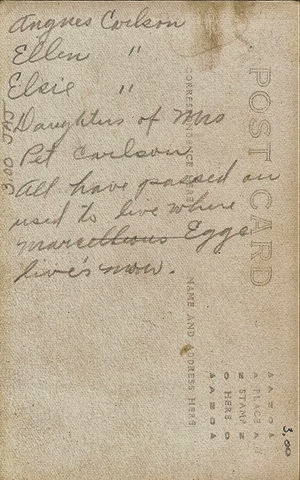 Angnes Carlson
Ellen "
Elsie "
Daughters of Mrs
Pet Carlson
All have passed on
used to live where
Eggs
live's now.
POST CARD
CORRESPONDENCE HERE
NAME AND ADDRESS HERE
AZO
PLACE
STAMP
HERE
AZO
3.00